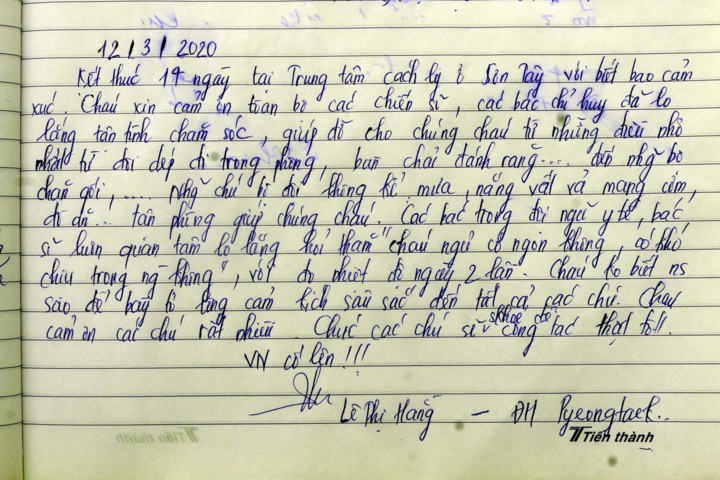 12/3/2020
Kết thúc 14 ngày tại Trung tâm cách ly ở Sơn Tây với biết bao cảm
xúc. Cháu xin cảm ơn toàn bộ các chiến sĩ, các bác chỉ huy đã lo
lắng tận tình chăm sóc, giúp đỡ cho chúng cháu từ những điều nhỏ
nhất từ đôi dép đi trong phòng, bàn chải đánh răng... đến những bộ
chăn gối, .... Những chú bộ đội không kể mưa, nắng vất vả mang cơm,
đồ ăn... tận phòng giúp chúng cháu. Các bác trong đội ngũ y tế, bác
sĩ luôn quan tâm lo lắng hỏi thăm "cháu ngủ có ngon không, có khó
chịu trong ng không", với đo nhiệt độ ngày 2 lần. Cháu ko biết ns
sao để bày tỏ lòng cảm kích sâu sắc đến tất cả các chú. Cháu
cảm ơn các chú rất nhiều. Chúc các chú sức khoẻ để công tác thật tốt!!.
VN cố lên!!!
Lê Thị Hằng - ĐH Pyeongtaek..
Tiến thành
Tiến thành